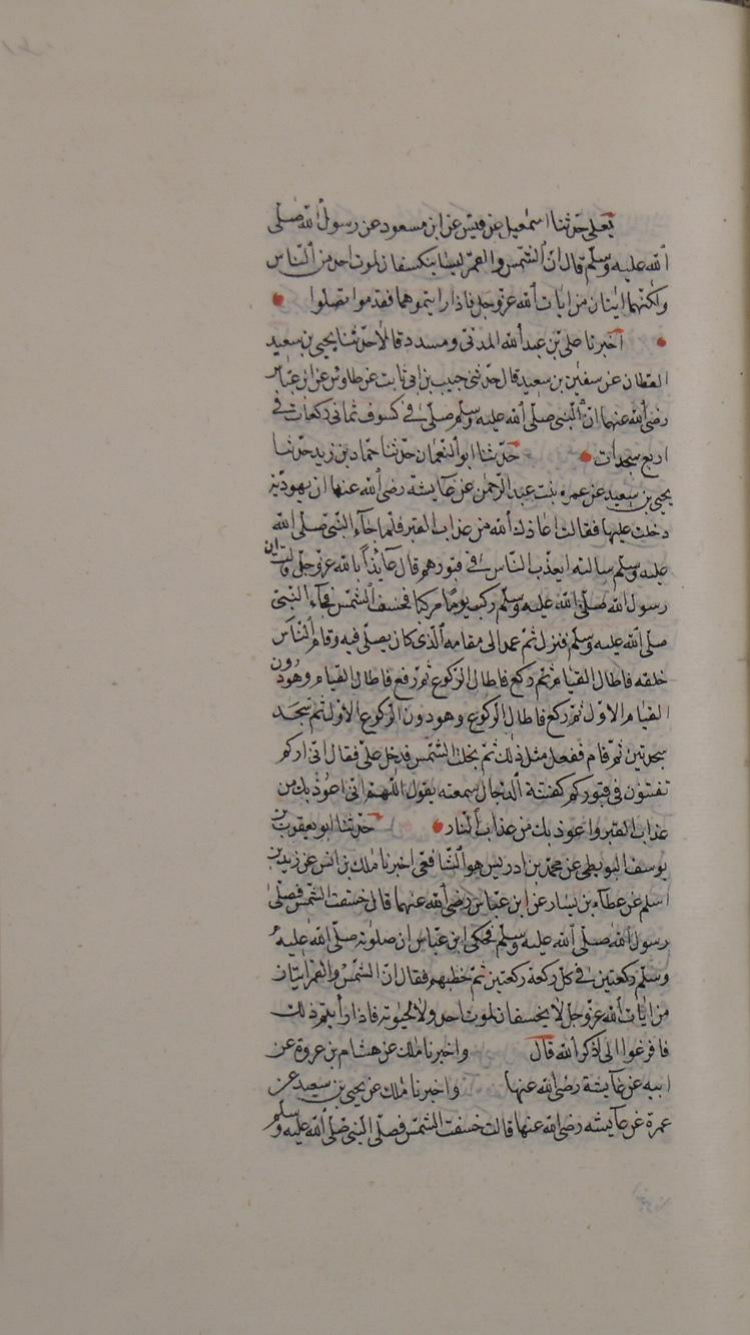 يعلى حدثنا اسمعيل عن قيس عن ابن مسعود عن رسول الله صلى
الله عليه وسلم قال ان الشمس والقمر ليسا ينكسفان لموت احد من الناس
ولكنهما ايتان من ايات الله عز وجل فاذا رايتموهما فقوموا فصلوا
اخبرنا على بن عبد الله المدنى ومسدد قالا حدثنا يحيى بن سعيد
القطان عن سفين بن سعيد قال حدثنى حبيب بن ابى ثابت عن طاوس عن ابن عباس
رضى الله عنهما ان النبى صلى الله عليه وسلم صلى فى كسوف ثمانى ركعات فى
اربع سجدات حدثنا ابو النعمان حدثنا حماد بن زيد حدثنا
يحيى بن سعيد عن عمرة بنت عبد الرحمن عن عايشة رضى الله عنها ان يهودية
دخلت عليها فقالت اعاذك الله من عذاب القبر فلما جاء النبى صلى الله
عليه وسلم سالته ايعذب الناس فى قبورهم قال عايذا بالله عز وجل قالت ان
رسول الله صلى الله عليه وسلم ركب يوما مركبا فخسف الشمس فجاء النبى
صلى الله عليه وسلم فنزل ثم عمد الى مقامه الذى كان يصلى فيه وقام الناس
خلفه فاطال القيام ثم ركع فاطال الركوع ثم رفع فاطال القيام وهو دون
القيام الاول ثم ركع فاطال الركوع وهو دون الركوع الاول ثم سجد
سجدتين ثم قام ففعل مثل ذلك ثم تجلت الشمس فدخل على فقال انى اراكم
تفتنون فى قبوركم كفتنة الدجال سمعته يقول اللهم انى اعوذ بك من
عذاب القبر واعوذ بك من عذاب النار حدثنا ابو يعقوب
يوسف البويطى عن محمد بن ادريس هو الشافعى اخبرنا ملك بن انس عن زيد بن
اسلم عن عطاء بن يسار عن ابن عباس رضى الله عنهما قال خسفت الشمس فصلى
رسول الله صلى الله عليه وسلم فحكى ابن عباس ان صلوته صلى الله عليه
وسلم ركعتين فى كل ركعة ركعتين ثم خطبهم فقال ان الشمس والقمر ايتان
من ايات الله عز وجل لا يخسفان لموت احد ولا لحيوته فاذا رايتم ذلك
فافزعوا الى ذكر الله قال واخبرنا ملك عن هشام بن عروة عن
ابيه عن عايشة رضى الله عنها واخبرنا ملك عن يحيى بن سعيد عن
عمرة عن عايشه رضى الله عنها قالت خسفت الشمس فصلى النبى صلى الله عليه وسلم